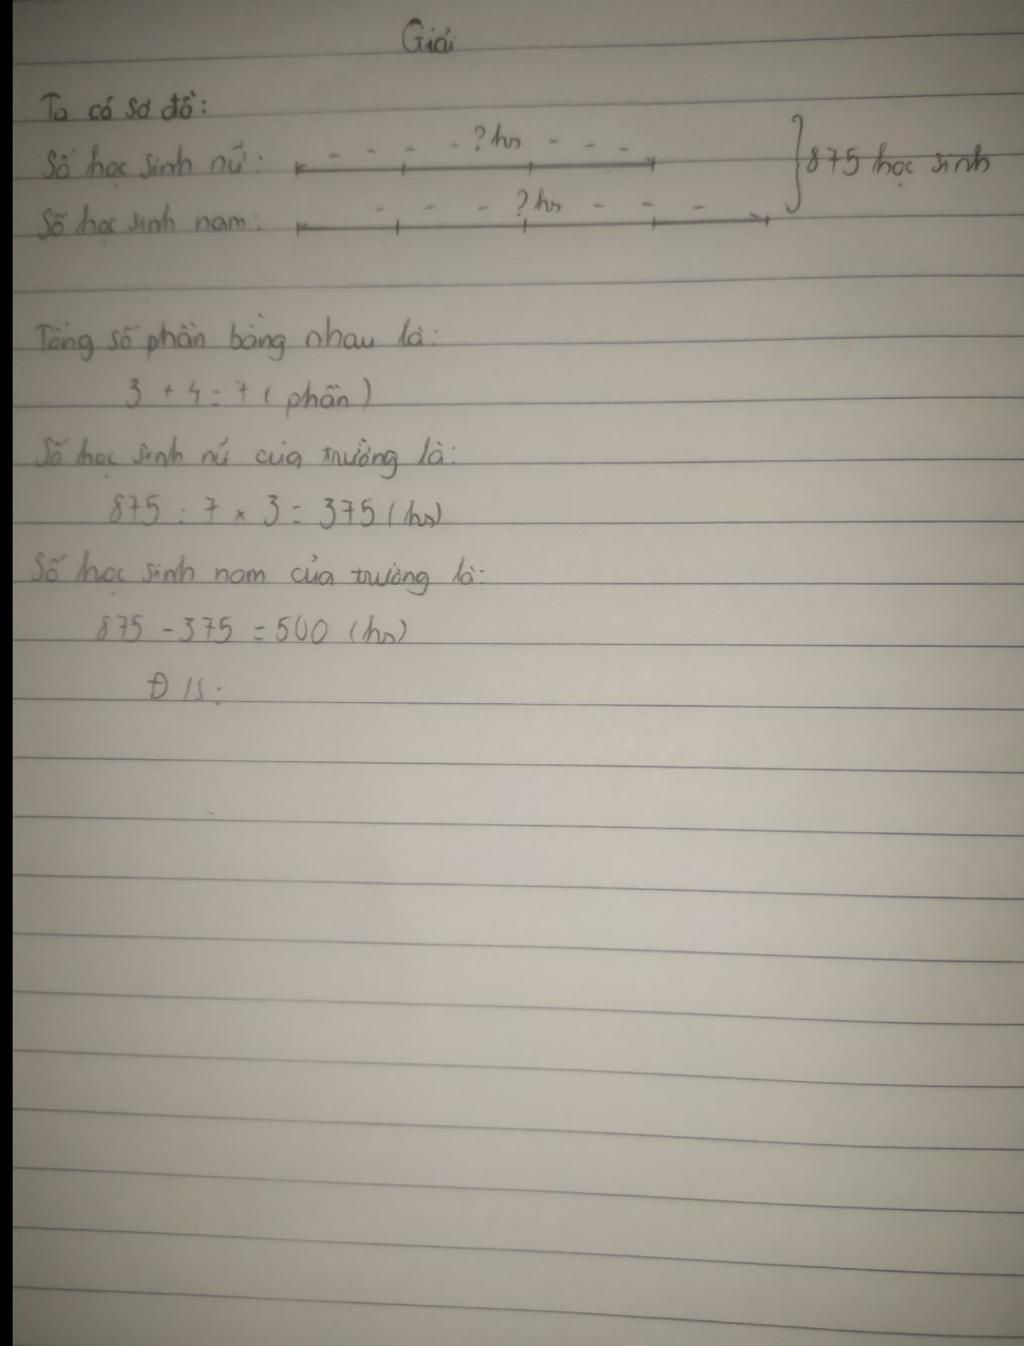 Giải
Ta có sơ đồ:
Số học sinh nữ: ?hs
Số học sinh nam: ?hs
875 học sinh
Tổng số phần bằng nhau là:
3 + 4 = 7 (phần)
Số học sinh nữ của trường là:
875 : 7 × 3 = 375 (hs)
Số học sinh nam của trường là:
875 - 375 = 500 (hs)
Đ/S: